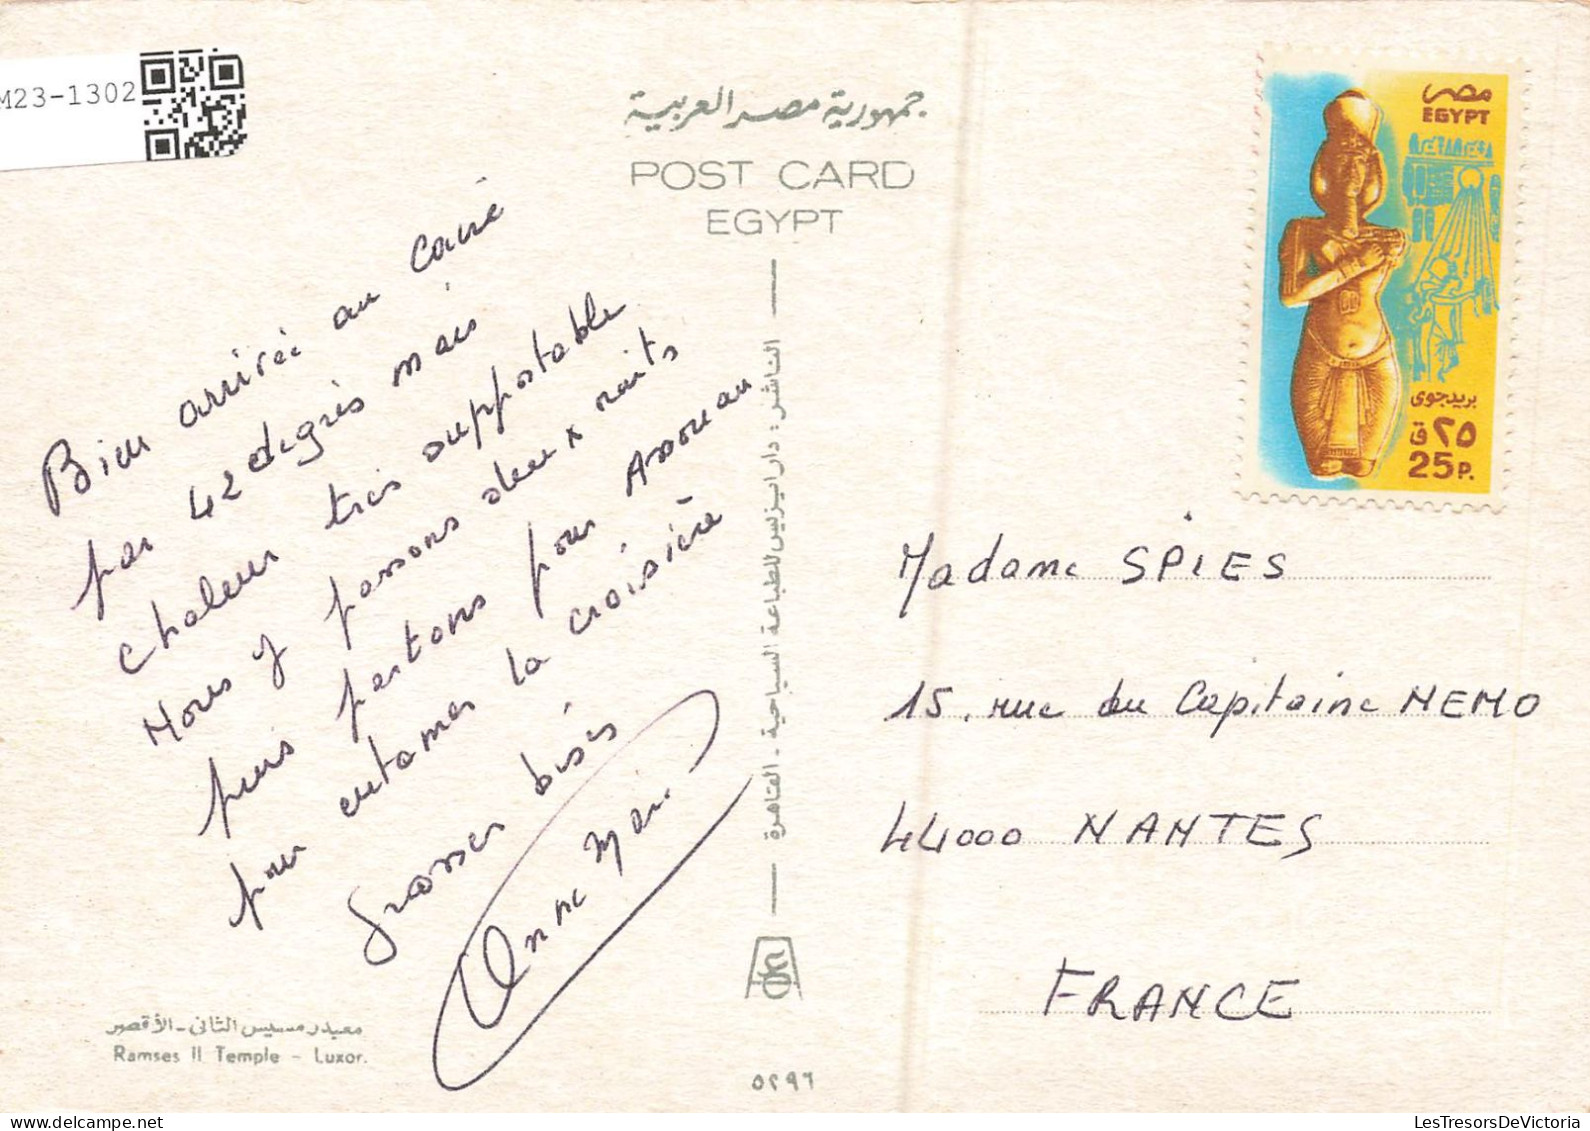 M23-1302
جمهورية مصر العربية
POST CARD
EGYPT
Bien arrivée au Caire
par 42 degrés mais
chaleur très supportable
Nous y passons deux nuits
puis partons pour Assouan
pour entamer la croisière
Grosses bises
Anne Marie
معبد رمسيس الثاني - الأقصر
Ramses II Temple - Luxor.
الناشر : دار ايزيس للطباعة السياحية - القاهرة
٥٢٩٦
مصر
EGYPT
بريد جوى
٢٥ ق
25P.
Madame SPIES
15, rue du Capitaine NEMO
44000 NANTES
FRANCE
LesTresorsDeVictoria